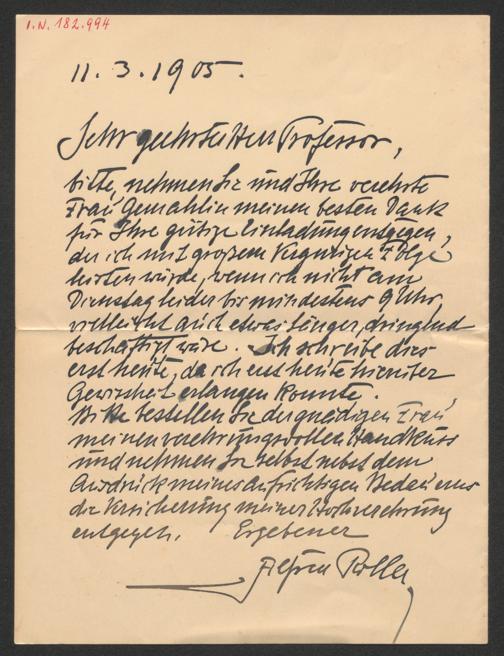 I.N. 182.994
11. 3. 1905.
Sehr geehrter Herr Professor,
bitte, nehmen Sie und Ihre verehrte
Frau Gemahlin meinen besten Dank
für Ihre gütige Einladung entgegen,
der ich mit großem Vergnügen Folge
leisten würde, wenn ich nicht am
Dienstag leider bis mindestens 9 Uhr,
vielleicht auch etwas länger, dringend
beschäftigt wäre. Ich schreibe dies
erst heute, da ich erst heute hierüber
Gewissheit erlangen konnte.
Bitte bestellen Sie der gnädigen Frau
meinen verehrungsvollen Handkuss
und nehmen Sie selbst nebst dem
Ausdruck meines aufrichtigen Bedauerns
die Versicherung meiner Hochverehrung
entgegen. Ergebener
Alfred Roller